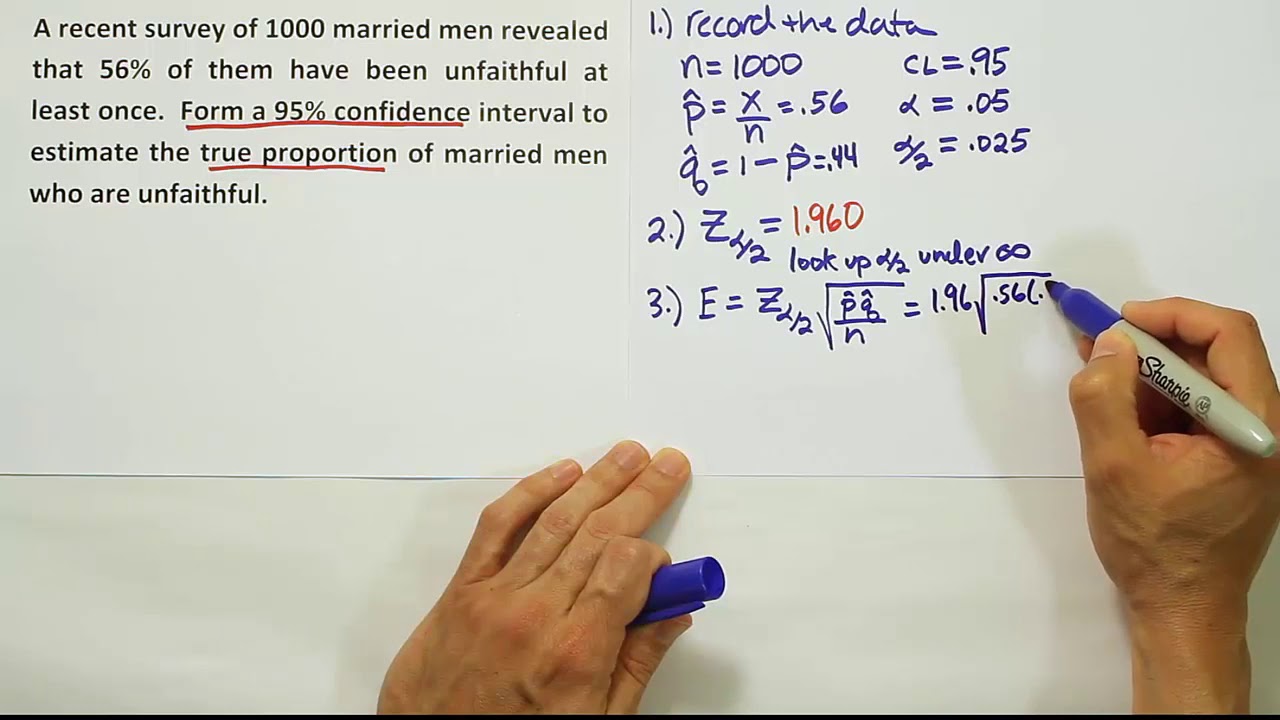 A recent survey of 1000 married men revealed
that 56% of them have been unfaithful at
least once. Form a 95% confidence interval to
estimate the true proportion of married men
who are unfaithful.
1.) record the data
n = 1000 CL = .95
p̂ = x/n = .56 α = .05
q̂ = 1 - p̂ = .44 α/2 = .025
2.) Zα/2 = 1.960
look up α/2 under ∞
3.) E = Zα/2 √(p̂q̂/n) = 1.96 √.56(.
Sharpie
AP